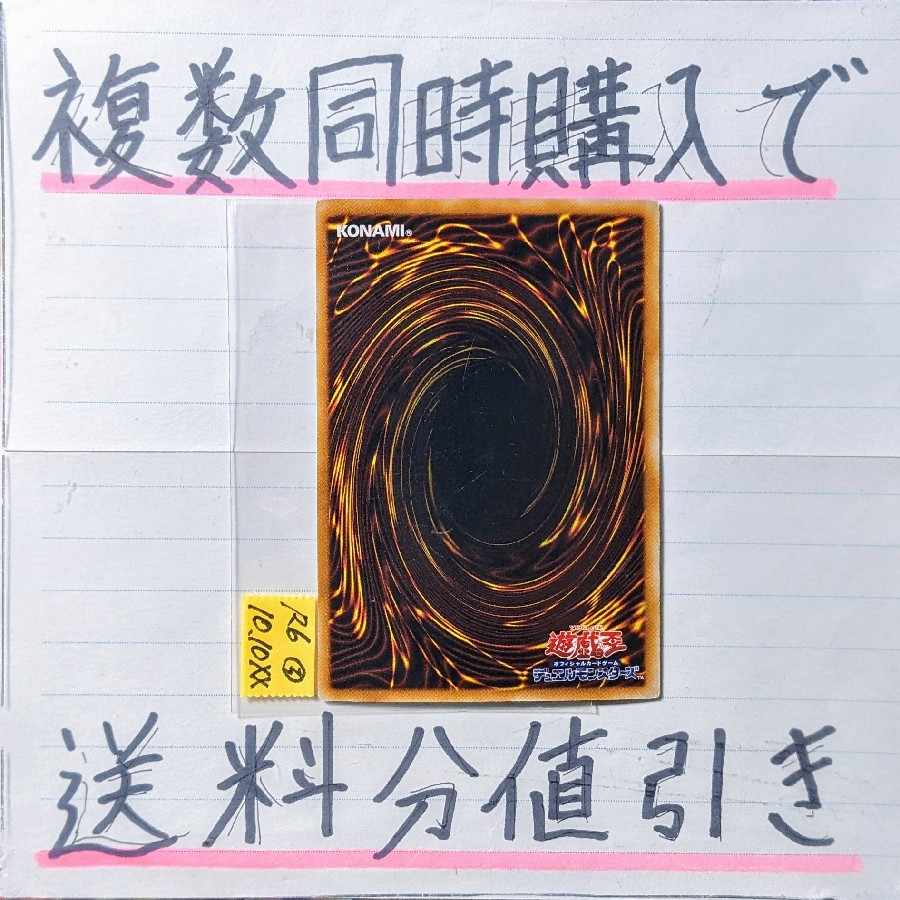 複数同時購入で
KONAMI®
R6 ⑦
10.10XX
遊戯王
オフィシャルカードゲーム
デュエルモンスターズ™
送料分値引き